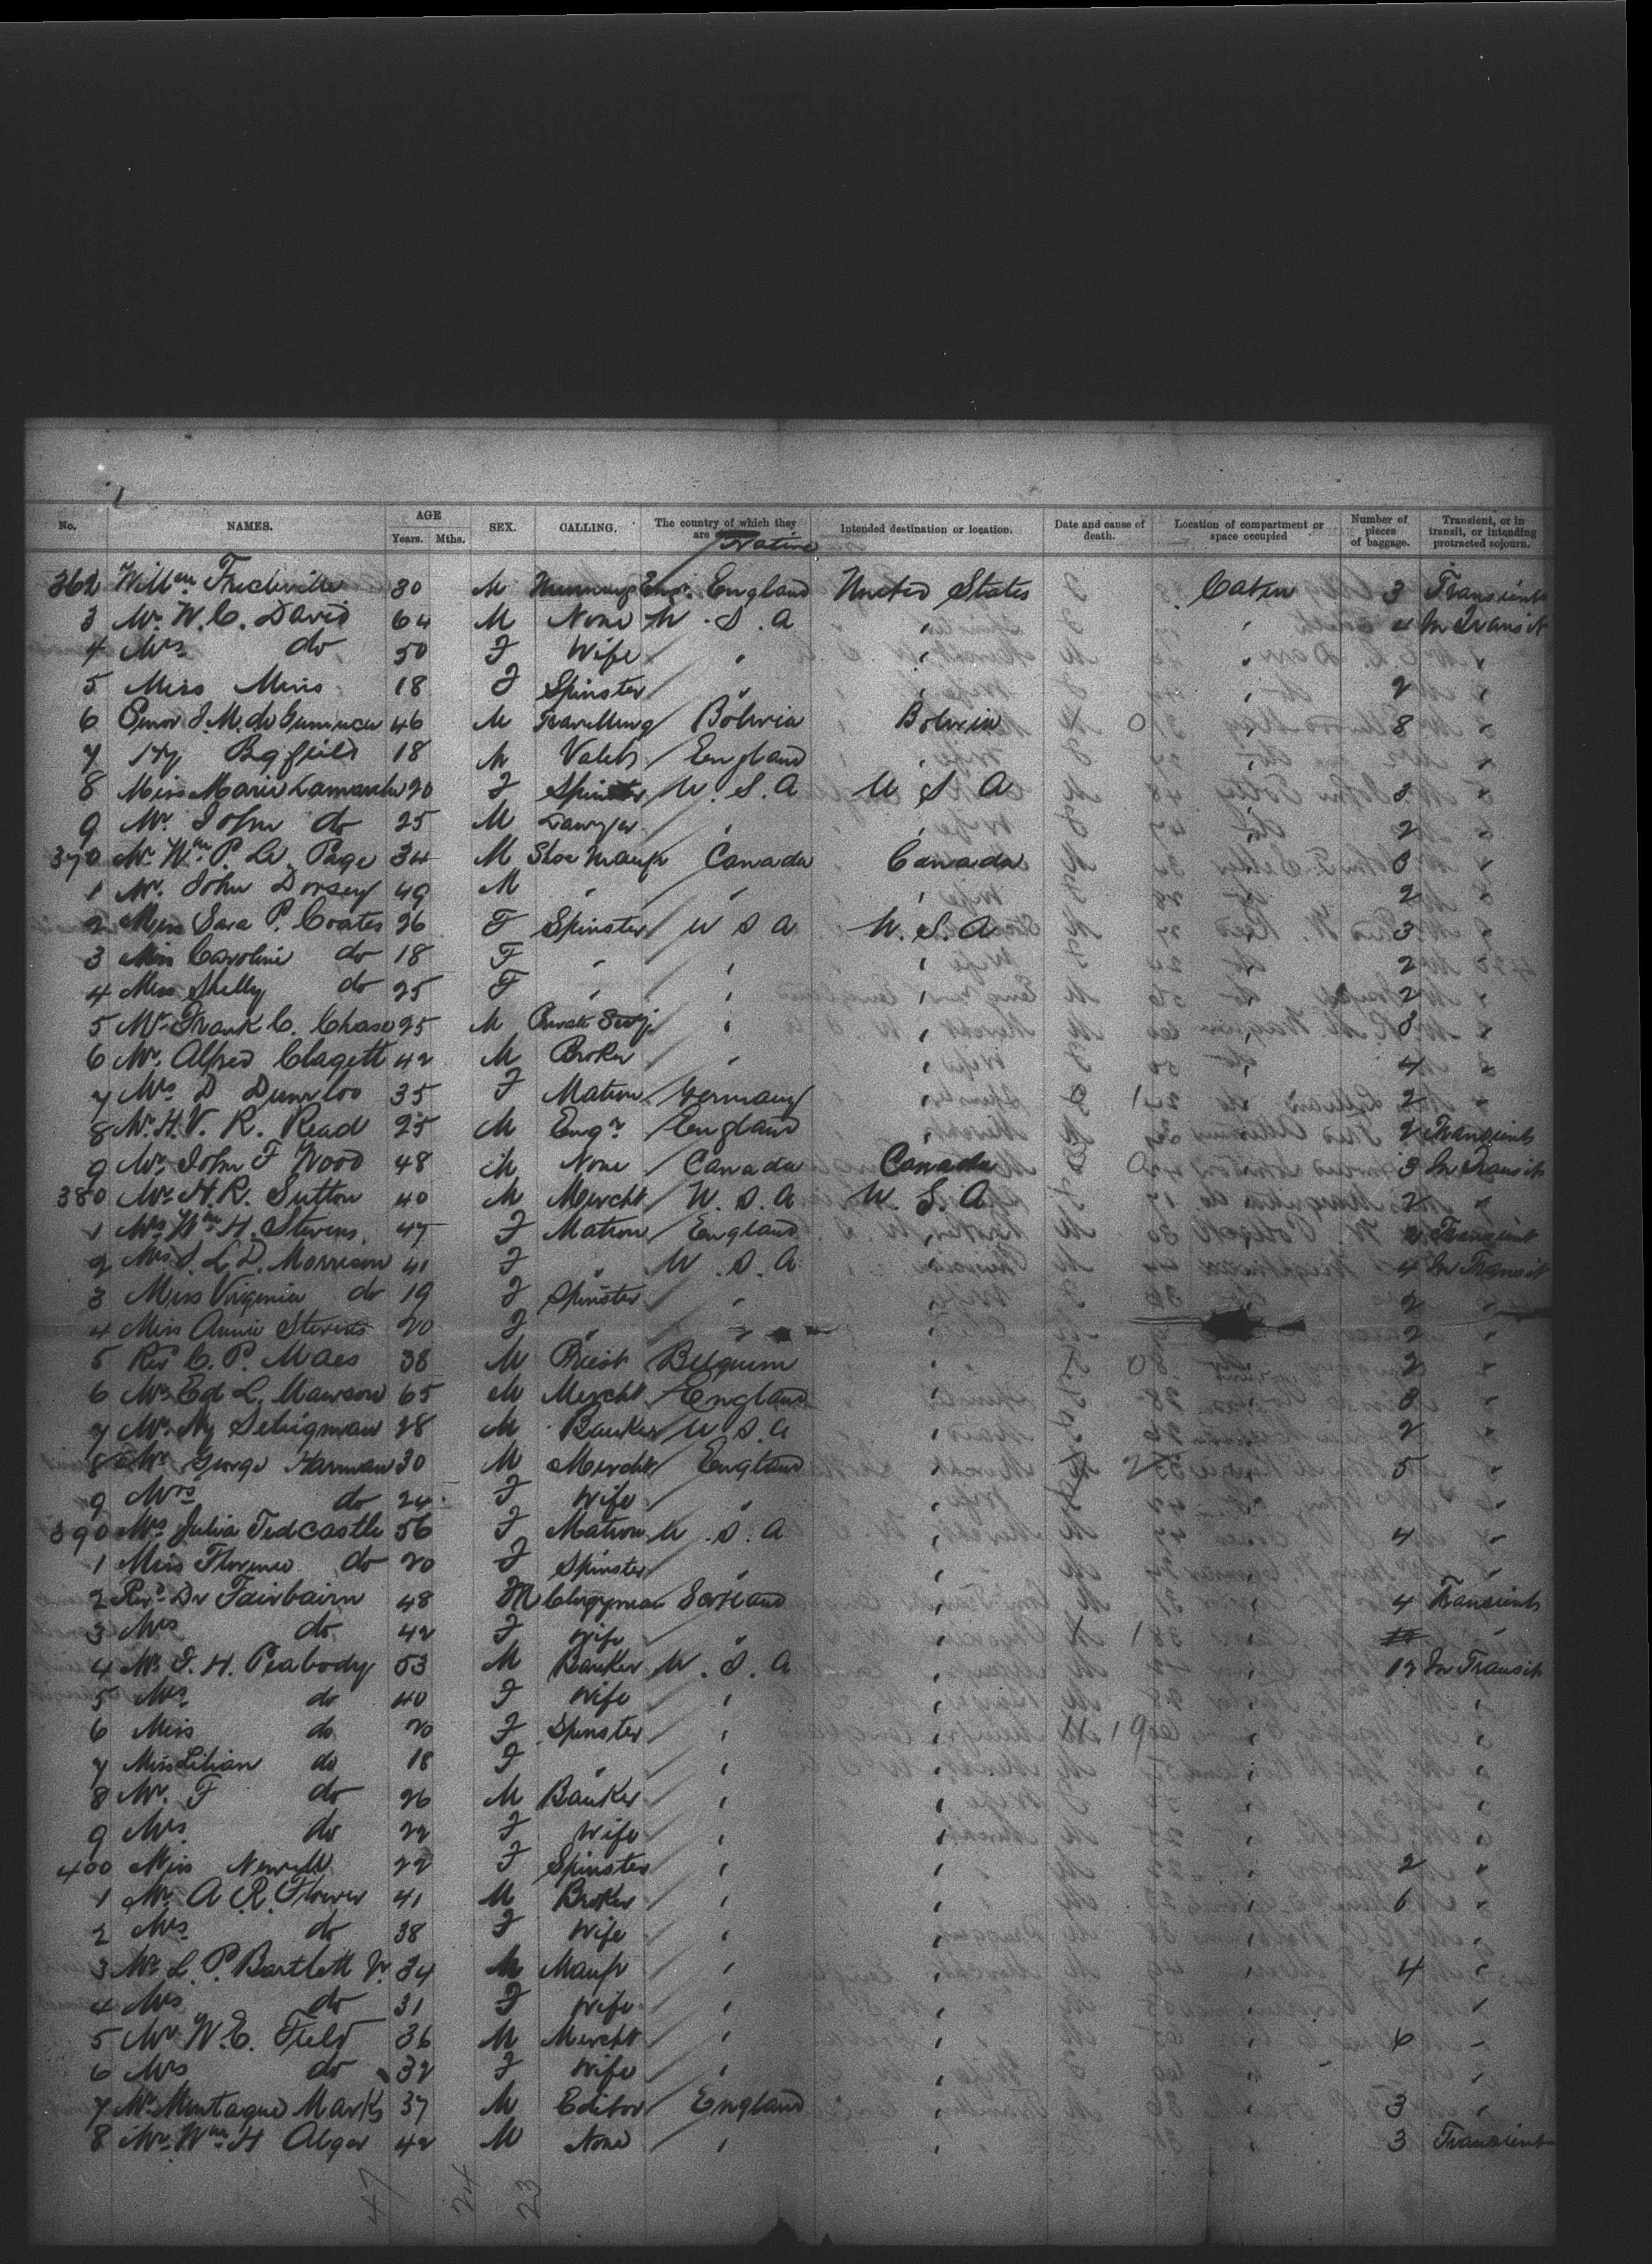 No. NAMES. AGE Years. Mths. SEX. CALLING. The country of which they are Native Intended destination or location. Date and cause of death. Location of compartment or space occupied Number of pieces of baggage. Transient, or in transit, or intending protracted sojourn.
362 Willm 30 M Engr. England United States Cabin 3 Transient
3 Mr. W. C. David 64 M None U.S.A " " 4 In Transit
4 Mrs do 50 F Wife " " " "
5 Miss 18 F Spinster " " " 2 "
6 J. M. de 46 M Travelling Bolivia Bolivia " 8 "
7 Hy 18 M Valet England " " "
8 Miss Marie 20 F Spinster U.S.A U S A " 3 "
9 Mr. John do 25 M Lawyer " " " 2 "
370 Mr. Wm P. Le Page 34 M Shoe Manfr Canada Canada " 3 "
1 Mr. John Dorsey 49 M " " " " 2 "
2 Miss Sara P. Coates 26 F Spinster U S A U.S.A " 3 "
3 Miss Caroline do 18 F " " " " 2 "
4 Miss Shelly do 25 F " " " " 2 "
5 Mr. Frank C. Chase 25 M Private Secy " " " 3 "
6 Mr. Alfred Clagett 42 M Broker " " " 4 "
7 Mrs D 35 F Matron Germany " " 2 "
8 Mr. H. V. R. Read 25 M Engr England " " 2 Transient
9 Mr. John F Wood 48 M None Canada Canada " 3 In Transit
380 Mr. H. R. Sutton 40 M Mercht U.S.A U.S.A " 2 "
1 Mrs Wm H. Stevens 47 F Matron England " " 2 Transient
2 Mrs L. D. Morrison 41 F " U.S.A " " 4 In Transit
3 Miss Virginia do 19 F Spinster " " " 2 "
4 Miss Annie Stevens 20 F " " " 2 "
5 Rev C. P. Maes 38 M Priest Belgium " " 2 "
6 Mr Ed L. Mawson 65 M Mercht England " " 3 "
7 Mr. Hy Seligman 28 M Banker U S A " " 2 "
8 Mr George Harman 30 M Mercht England " " 5 "
9 Mrs do 24 F Wife " " " "
390 Mrs Julia Tedcastle 56 F Matron U.S.A " " 4 "
1 Miss Florence do 20 F Spinster " " " "
2 Revd Dr Fairbairn 48 M Clergyman Scotland " " 4 Transient
3 Mrs do 42 F Wife " " " "
4 Mr J. H. Peabody 53 M Banker U.S.A " " 12 In Transit
5 Mrs do 40 F Wife " " " "
6 Miss do 20 F Spinster " " " "
7 Miss Lilian do 18 F " " " " "
8 Mr. F do 26 M Banker " " " "
9 Mrs do 22 F Wife " " " "
400 Miss Newell 22 F Spinster " " " 2 "
1 Mr. A. R. Flower 41 M Broker " " " 6 "
2 Mrs do 38 F Wife " " " "
3 Mr. L. P. Bartlett Jr. 34 M Manfr " " " 4 "
4 Mrs do 31 F Wife " " " "
5 Mr W. E. Field 36 M Mercht " " " 6 "
6 Mrs do 32 F Wife " " " "
7 Mr. Montague Marks 37 M Editor England " " 3 "
8 Mr. Wm H Alger 42 M None " " " 3 Transient
47 24 23